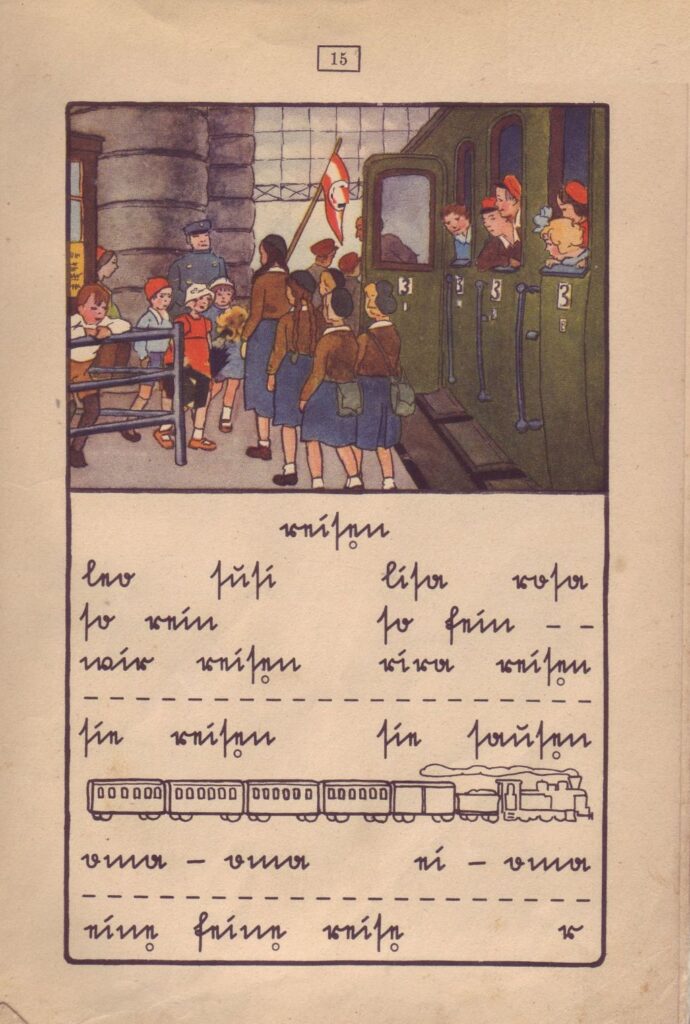 15
3 3 3 3
reisen
leo susi lisa rosa
so rein so fein – –
wir reisen rira reisen
sie reisen sie sausen
oma – oma ei – oma
eine feine reise r